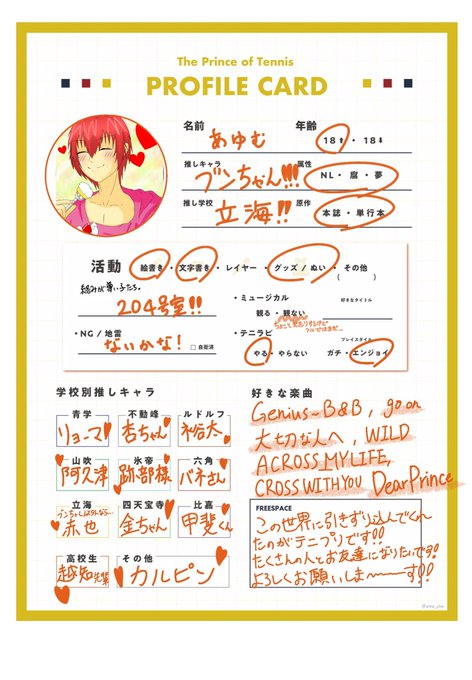 The Prince of Tennis
PROFILE CARD
名前 あゆむ 年齢 18↑・18↓
推しキャラ ブンちゃん!!! 属性 NL・腐・夢
推し学校 立海!! 原作 本誌・単行本
活動 絵書き・文字書き・レイヤー・グッズ/ぬい・その他
( )
絡みが尊い子たち。
204号室!!
・NG/地雷
ないかな! □自衛済
・ミュージカル 好きなタイトル
観る・観ない
・テニラビ プレイスタイル
やる・やらない ガチ・エンジョイ
学校別推しキャラ
青学 不動峰 ルドルフ
リョーマ 杏ちゃん 裕太
山吹 氷帝 六角
阿久津 跡部様 バネさん
立海 四天宝寺 比嘉
ブンちゃん以外なら…
赤也 金ちゃん 甲斐くん
高校生 その他
越知先輩 カルピン
好きな楽曲
Genius~B&B, go on
大切な人へ, WILD
ACROSS MY LIFE,
CROSS WITH YOU Dear Prince
FREESPACE
この世界に引きずり込んでくれ
たのがテニプリです!!
たくさんの人とお友達になりたいです!
よろしくお願いしま〜〜〜す!!